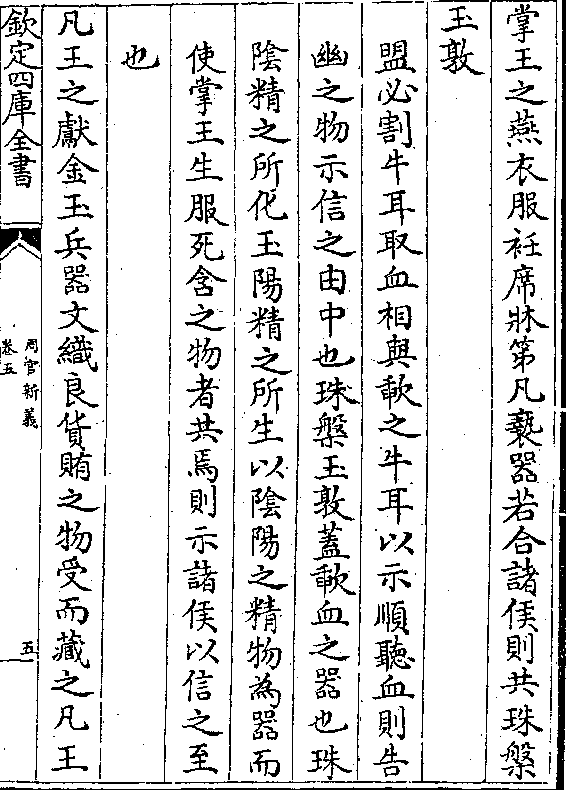 掌王之燕衣服衽席牀笫凡褻器若合諸侯則共珠槃
玉敦
盟必割牛耳取血相與歃之牛耳以示順聽血則告
幽之物示信之由中也珠槃玉敦蓋歃血之器也珠
陰精之所化玉陽精之所生以陰陽之精物為器而
使掌王生服死含之物者共焉則示諸侯以信之至
也
凡王之獻金玉兵器文織良貨賄之物受而藏之凡王
欽定四庫全書
周官新義
卷五
五